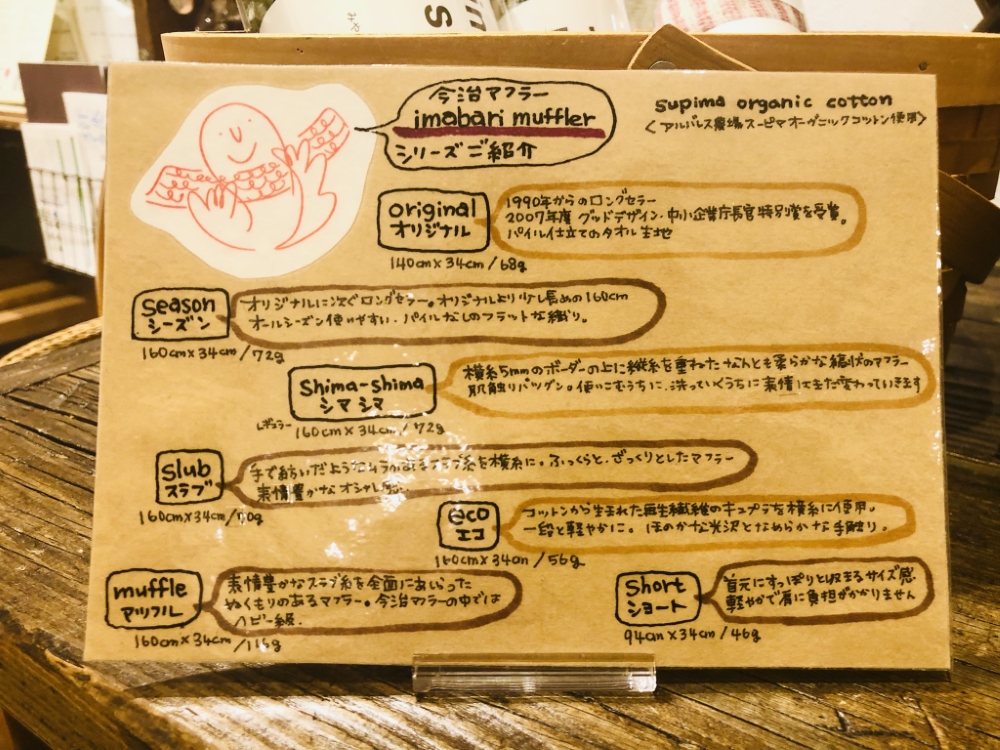 今治マフラー
imabari muffler
シリーズご紹介
supima organic cotton
<アルバレス農場スーピマオーガニックコットン使用>
original
オリジナル
1990年からのロングセラー
2007年度 グッドデザイン・中小企業庁長官特別賞を受賞。
パイル仕立てのタオル生地
140cm×34cm/68g
season
シーズン
オリジナルに次ぐロングセラー。オリジナルより少し長めの160cm
オールシーズン使いやすい、パイルなしのフラットな織り。
160cm×34cm/72g
Shima-shima
シマシマ
横糸5mmのボーダーの上に縦糸を重ねたなんとも柔らかな縞状のマフラー
肌触りバツグン。使いこむうちに、洗っていくうちに表情はまた変わっていきます
レギュラー
160cm×34cm/72g
Slub
スラブ
手で紡いだようなムラがあるスラブ糸を横糸に。ふっくらと、ざっくりとしたマフラー
表情豊かなオシャレ
160cm×34cm/70g
eco
エコ
コットンから生まれた再生繊維のキュプラを横糸に使用。
一段と軽やかに。ほのかな光沢となめらかな手触り。
160cm×34cm/56g
muffle
マッフル
表情豊かなスラブ糸を全面にあしらった
ぬくもりのあるマフラー。今治マフラーの中では
ヘビー級。
160cm×34cm/115g
Short
ショート
首元にすっぽりと収まるサイズ感
軽やかで肩に負担がかかりません
94cm×34cm/46g